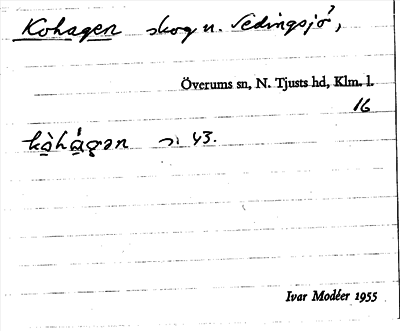 Kohagen skog n. Vedingsjö,
Överums sn, N. Tjusts hd, Klm. l.
16
43.
Ivar Modéer 1955